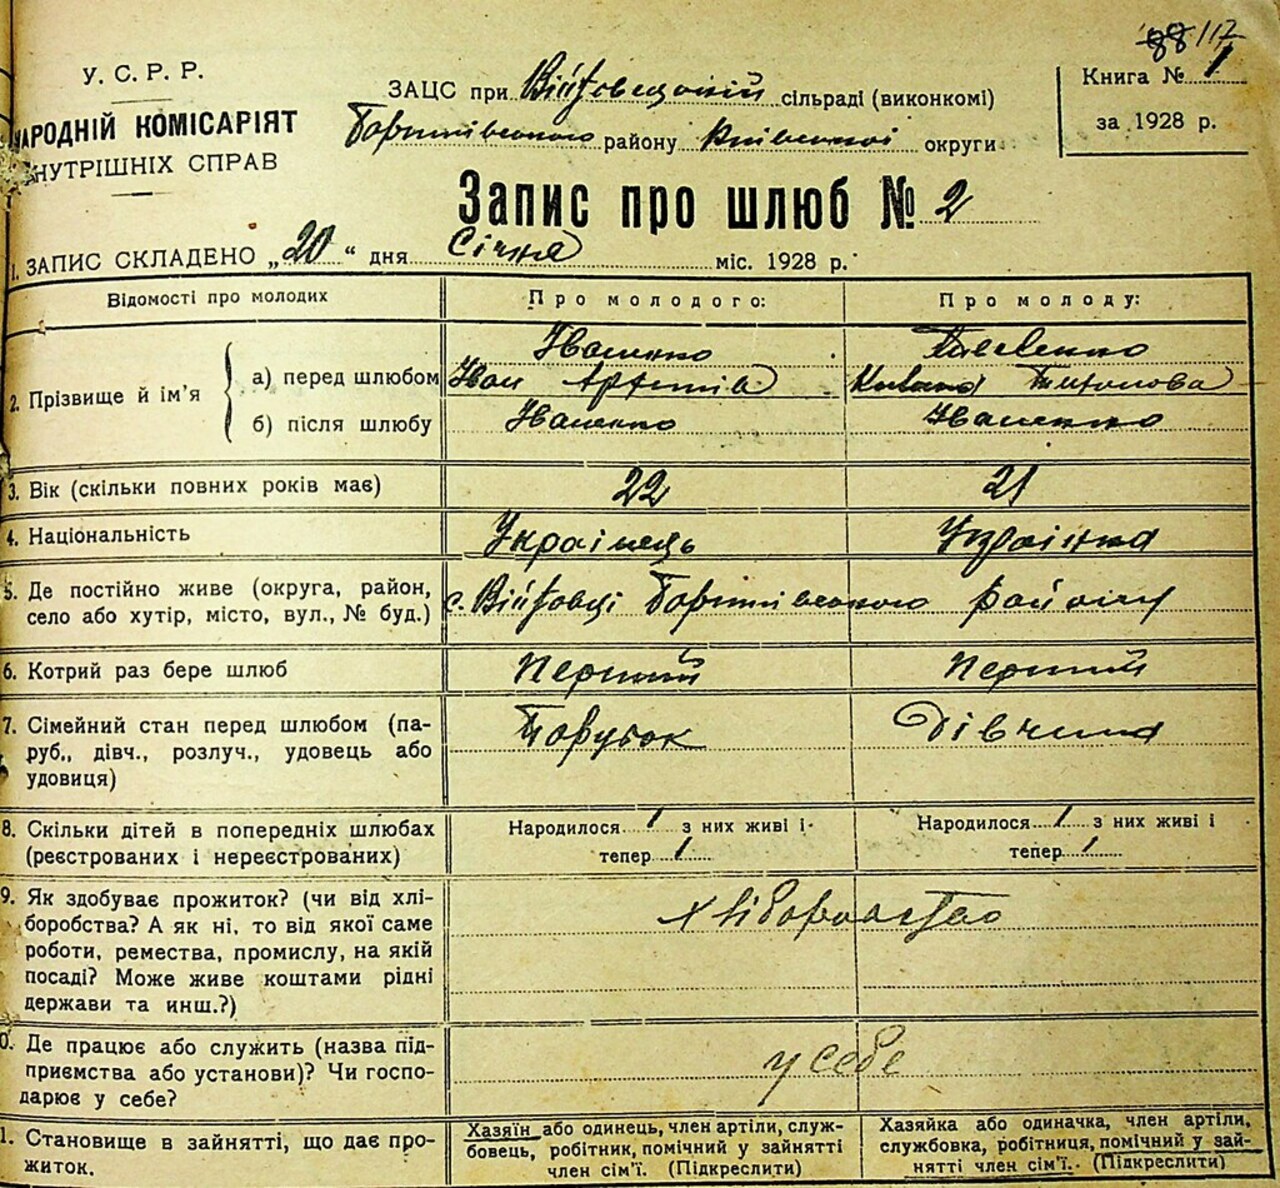 88 117
У. С. Р. Р.
НАРОДНІЙ КОМІСАРІЯТ
ВНУТРІШНІХ СПРАВ
ЗАЦС при Війтовецькій сільраді (виконкомі)
району Київської округи
Книга № 1
за 1928 р.
Запис про шлюб № 2
1. ЗАПИС СКЛАДЕНО „20“ дня Січня міс. 1928 р.
Відомості про молодих
Про молодого:
Про молоду:
2. Прізвище й ім'я
а) перед шлюбом
Іваненко
Іван Артемів
Павленко
б) після шлюбу
Іваненко
Іваненко
3. Вік (скільки повних років має)
22
21
4. Національність
Українець
Українка
5. Де постійно живе (округа, район,
село або хутір, місто, вул., № буд.)
с. Війтовці району
6. Котрий раз бере шлюб
Перший
Перший
7. Сімейний стан перед шлюбом (па-
руб., дівч., розлуч., удовець або
удовиця)
Парубок
Дівчина
8. Скільки дітей в попередніх шлюбах
(реєстрованих і нереєстрованих)
Народилося 1 з них живі і
тепер 1
Народилося 1 з них живі і
тепер 1
9. Як здобуває прожиток? (чи від хлі-
боробства? А як ні, то від якої саме
роботи, ремества, промислу, на якій
посаді? Може живе коштами рідні
держави та инш.?)
хліборобство
0. Де працює або служить (назва під-
приємства або установи)? Чи госпо-
дарює у себе?
у себе
1. Становище в зайнятті, що дає про-
житок.
Хазяїн або одинець, член артіли, служ-
бовець, робітник, помічний у зайнятті
член сім'ї. (Підкреслити)
Хазяйка або одиначка, член артіли,
службовка, робітниця, помічний у зай-
нятті член сім'ї. (Підкреслити)